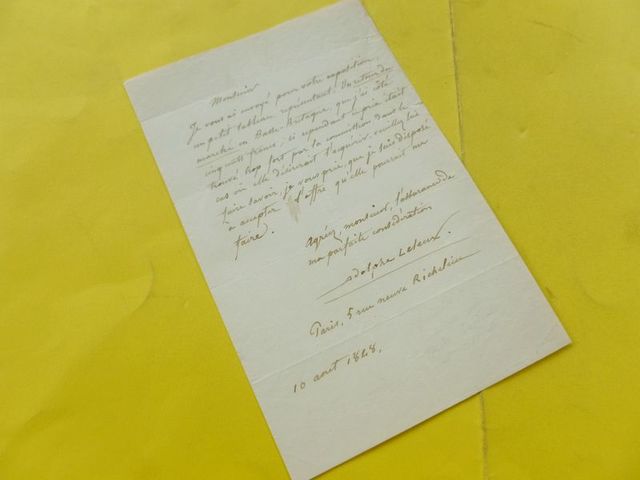 Monsieur
Je vous ai envoyé pour votre exposition
un petit tableau représentant Un retour du
marché en Basse Bretagne, que j'ai côté
cinq cents francs, si cependant ce prix était
trouvé trop fort par la commission dans le
cas où elle désirerait l'acquérir, veuillez lui
faire savoir, je vous prie, que je suis disposé
à accepter l'offre qu'elle pourrait me
faire.
Agréez, monsieur, l'assurance de
ma parfaite considération
Adolphe Leleux.
Paris, 5 rue neuve Richelieu
10 août 1848.